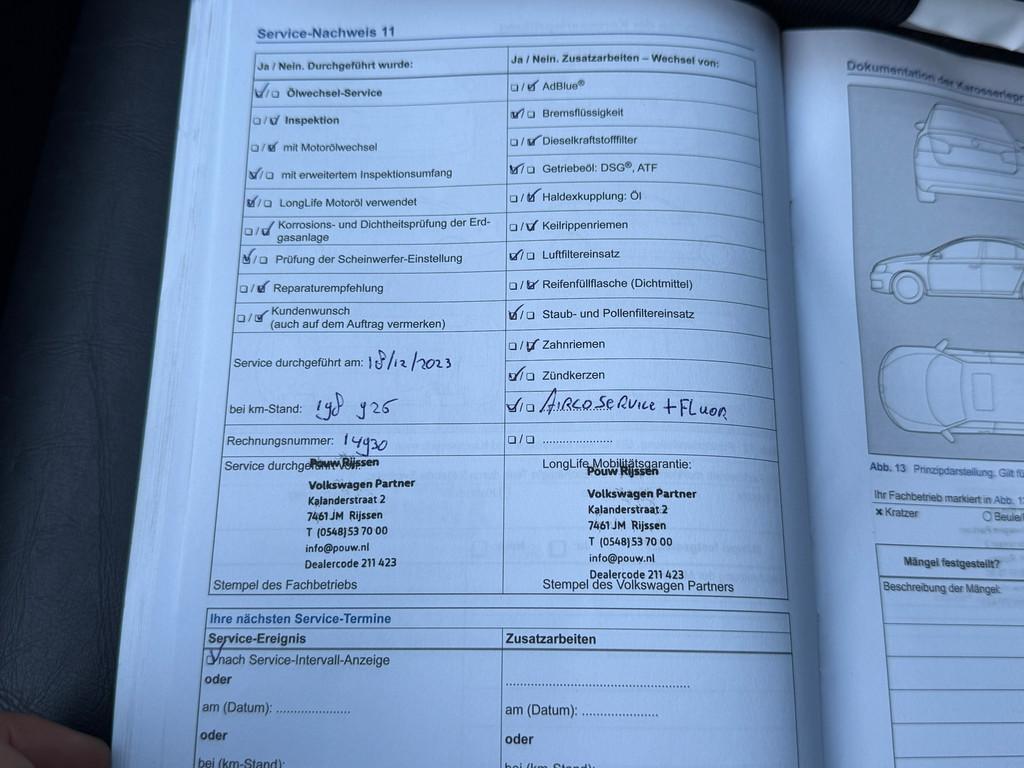 Service-Nachweis 11
Ja / Nein. Durchgeführt wurde:
☑/☐ Ölwechsel-Service
☐/☑ Inspektion
☐/☑ mit Motorölwechsel
☑/☐ mit erweitertem Inspektionsumfang
☑/☐ LongLife Motoröl verwendet
☐/☑ Korrosions- und Dichtheitsprüfung der Erd-
gasanlage
☑/☐ Prüfung der Scheinwerfer-Einstellung
☐/☑ Reparaturempfehlung
☐/☑ Kundenwunsch
(auch auf dem Auftrag vermerken)
Service durchgeführt am: 18/12/2023
bei km-Stand: 198 926
Rechnungsnummer: 14930
Service durchgeführt von:
Pouw Rijssen
Volkswagen Partner
Kalanderstraat 2
7461 JM Rijssen
T (0548) 53 70 00
info@pouw.nl
Dealercode 211 423
Stempel des Fachbetriebs
Ja / Nein. Zusatzarbeiten – Wechsel von:
☐/☑ AdBlue®
☑/☐ Bremsflüssigkeit
☐/☑ Dieselkraftstofffilter
☑/☐ Getriebeöl: DSG®, ATF
☐/☑ Haldexkupplung: Öl
☐/☑ Keilrippenriemen
☑/☐ Luftfiltereinsatz
☐/☑ Reifenfüllflasche (Dichtmittel)
☑/☐ Staub- und Pollenfiltereinsatz
☐/☑ Zahnriemen
☑/☐ Zündkerzen
☑/☐ AIRCOSERVICE + FLUOR
☐/☐ .....................
LongLife Mobilitätsgarantie:
Pouw Rijssen
Volkswagen Partner
Kalanderstraat 2
7461 JM Rijssen
T (0548) 53 70 00
info@pouw.nl
Dealercode 211 423
Stempel des Volkswagen Partners
Ihre nächsten Service-Termine
Service-Ereignis
☑ nach Service-Intervall-Anzeige
oder
am (Datum): .....................
oder
bei (km-Stand):
Zusatzarbeiten
.....................................................
am (Datum): .....................
oder
bei (km-Stand):
Dokumentation der
Abb. 13 Prinzipdarstellung. Gilt
Ihr Fachbetrieb markiert in Abb.
× Kratzer
Mängel festgestellt?
Beschreibung der Mängel: